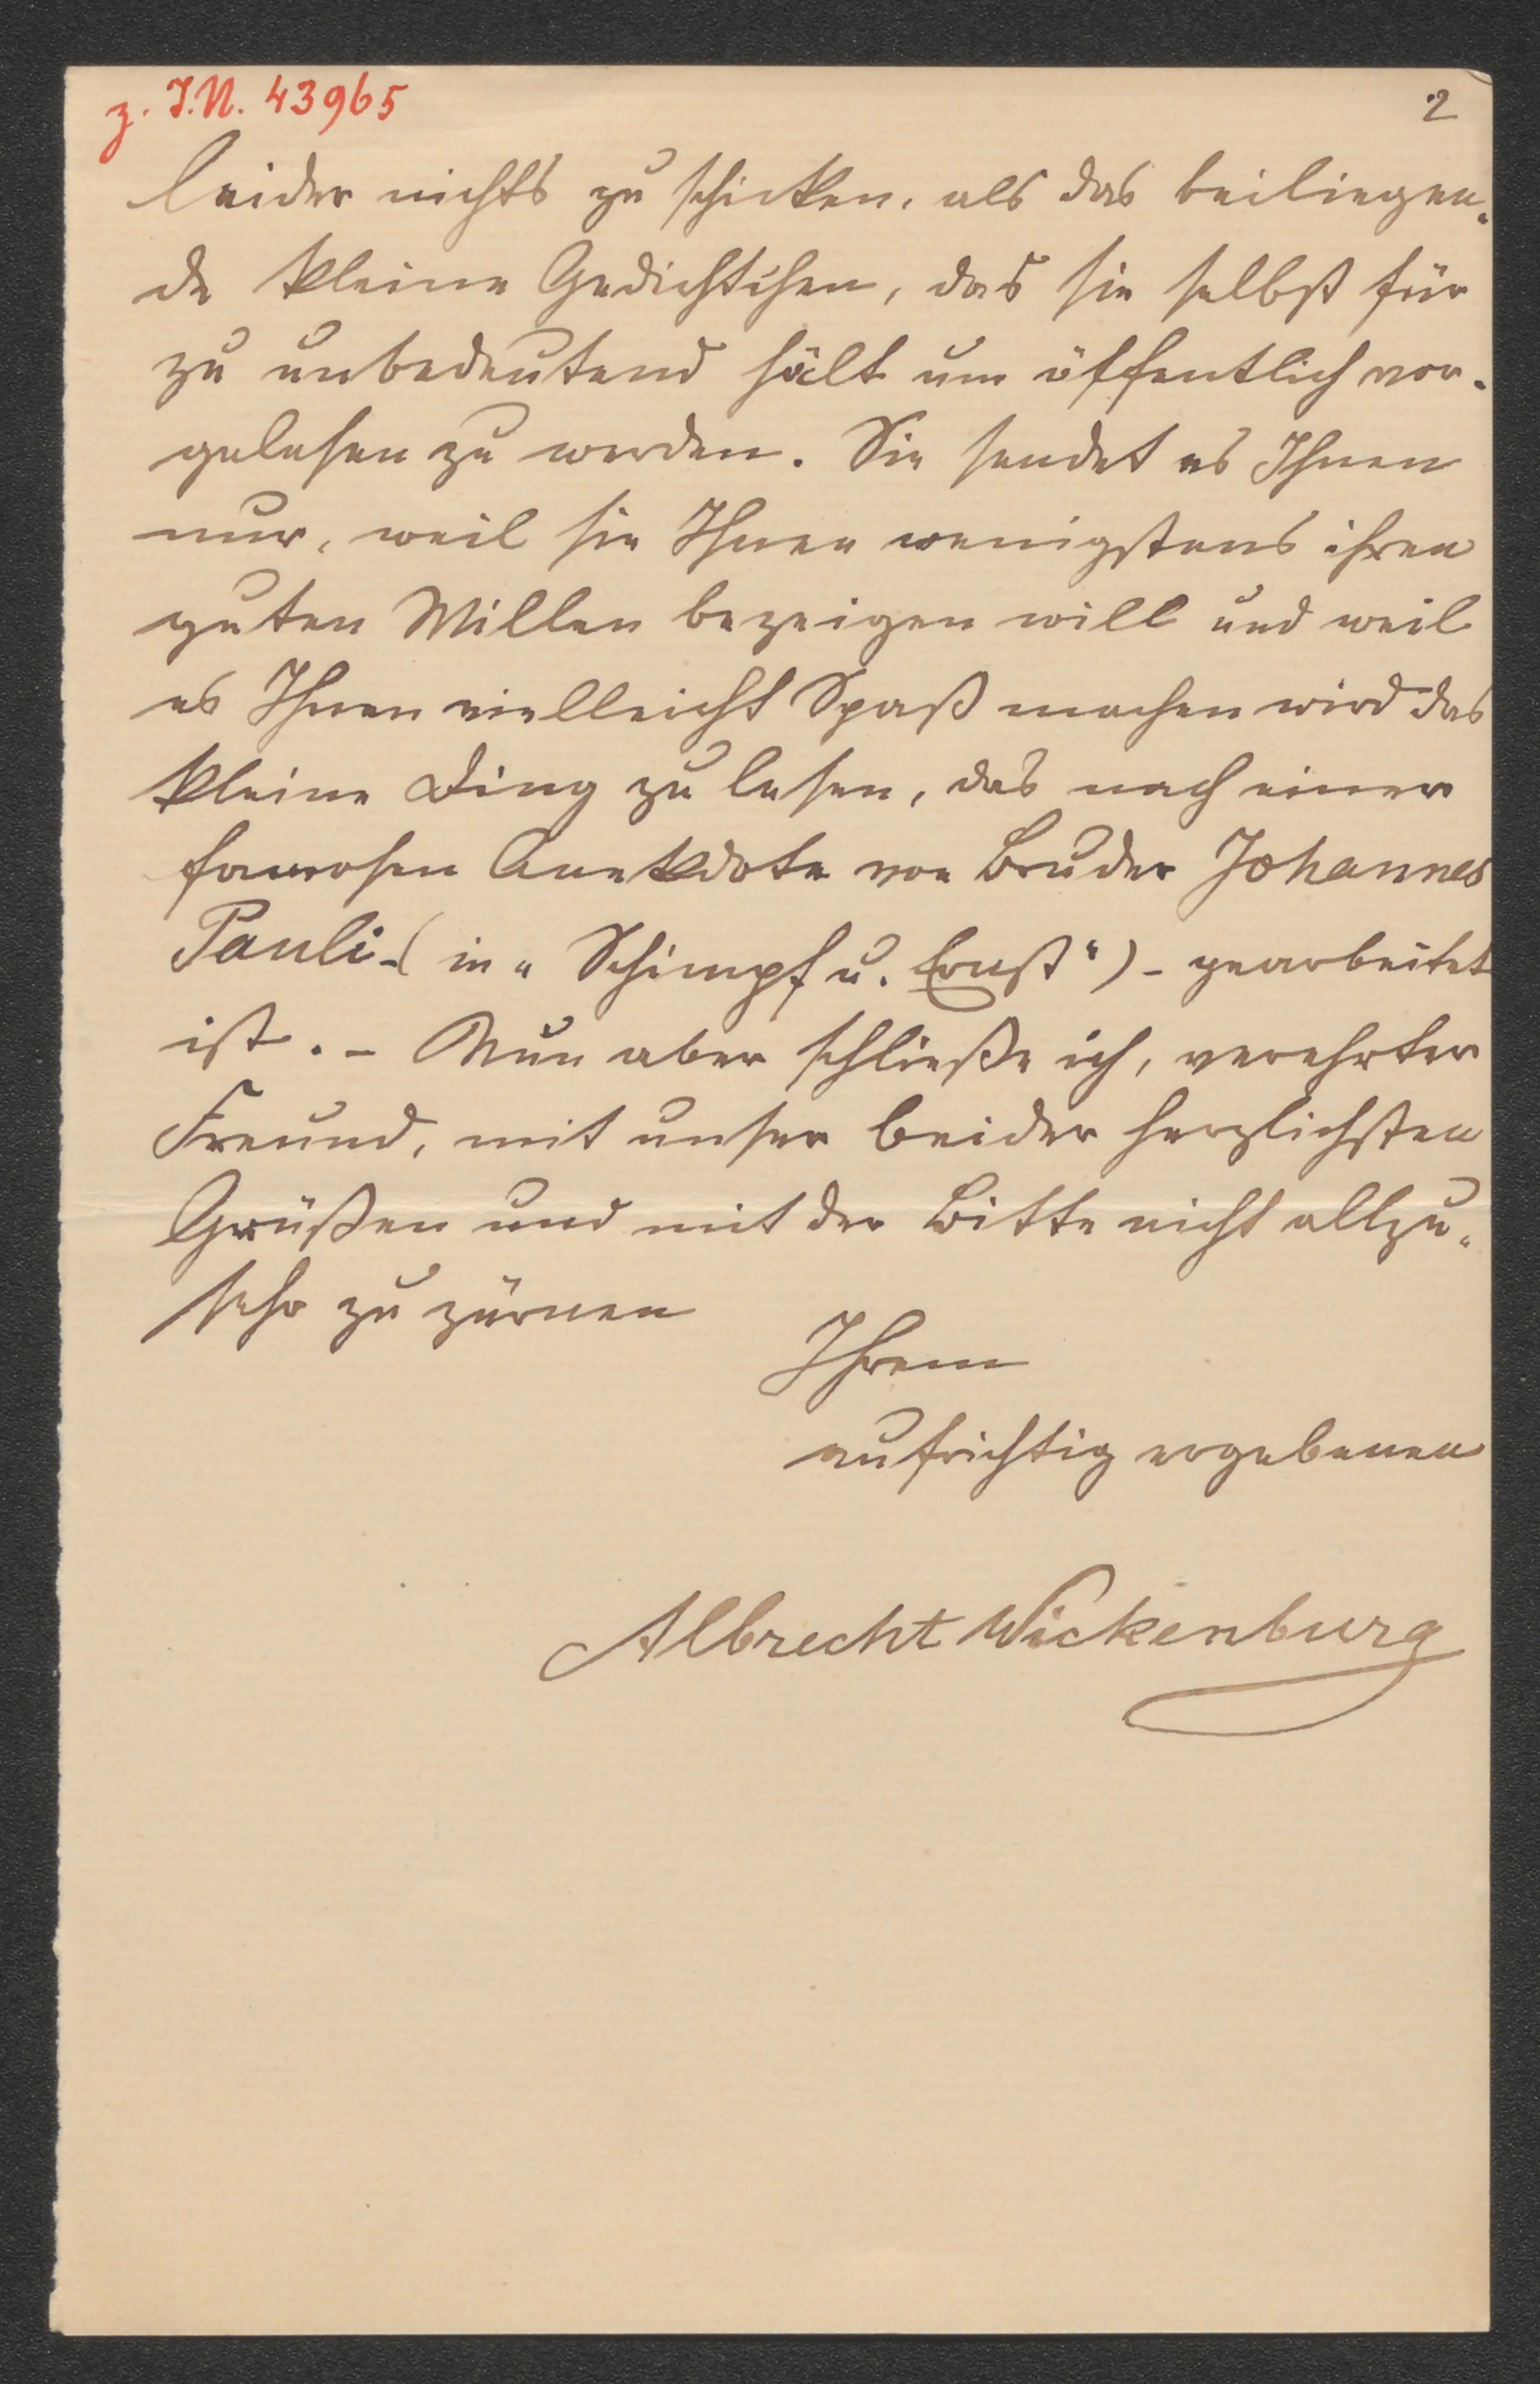 z. I.N. 43965
2
leider nichts zu schicken, als das beiliegen-
de kleine Gedichtchen, das sie selbst für
zu unbedeutend hält um öffentlich vor-
gelesen zu werden. Sie sendet es Ihnen
nur, weil sie Ihnen wenigstens ihren
guten Willen bezeigen will und weil
es Ihnen vielleicht Spaß machen wird das
kleine Ding zu lesen, das nach einer
famosen Anekdote von Bruder Johannes
Pauli -( in „Schimpf u. Ernst“) - gearbeitet
ist. - Nun aber schließe ich, verehrter
Freund, mit unser beider herzlichsten
Grüßen und mit der Bitte nicht allzu-
sehr zu zürnen
Ihrem
aufrichtig ergebenen
Albrecht Wickenburg